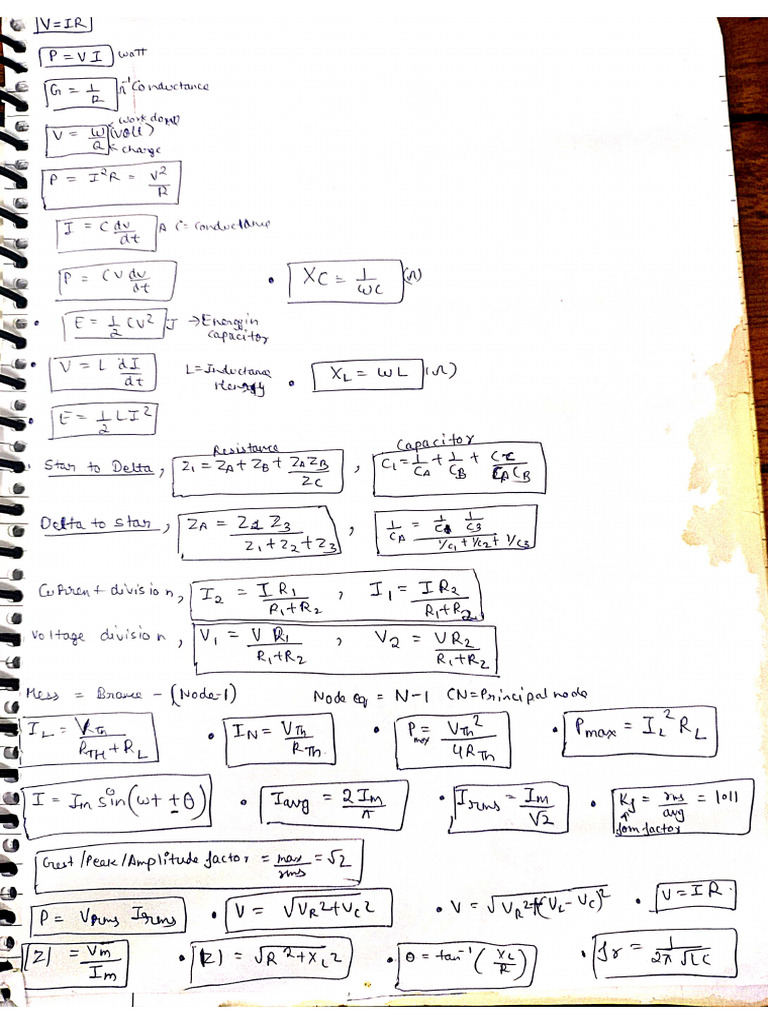 V=IR
P = VI watt
G = 1/R Ω⁻¹ Conductance
V = W/Q (volt) ← work done ← charge
P = I²R = V²/R
I = C dv/dt A C = conductance
P = CV dv/dt • XC = 1/ωC (Ω)
• E = 1/2 CV² J → Energy in capacitor
• V = L dI/dt L = Inductance Henry • X_L = ωL (Ω)
• E = 1/2 LI²
Resistance Capacitor
• Star to Delta, Z₁ = Z_A + Z_B + Z_A Z_B/Z_C , C₁ = 1/C_A + 1/C_B +
Delta to star, Z_A = Z₂ Z₃/Z₁+Z₂+Z₃ , 1/C_A = 1/C₃/1/C₁+1/C₂+1/C₃
Current division, I₂ = I R₁/R₁+R₂ , I₁ = I R₂/R₁+R₂
Voltage division, V₁ = V R₁/R₁+R₂ , V₂ = V R₂/R₁+R₂
Mess = Brance - (Node-1) Node eq = N-1 CN=Principal node
I_L = V_Th/R_TH + R_L • I_N = V_Th/R_Th • P_max = V_Th²/4R_Th • P_max = I_L² R_L
I = I_m sin(ωt ± θ) • I_avg = 2I_m/π • I_rms = I_m/√2 • K_f = rms/avg = 1.11
form factor
Crest/Peak/Amplitude factor = max/rms = √2
P = V_rms I_rms • V = √V_R²+V_C² • V = √V_R²+(V_L-V_C)² • V = IR
|Z| = V_m/I_m • |Z| = √R²+X_L² • θ = tan⁻¹(X_L/R) • fr = 1/2π√LC